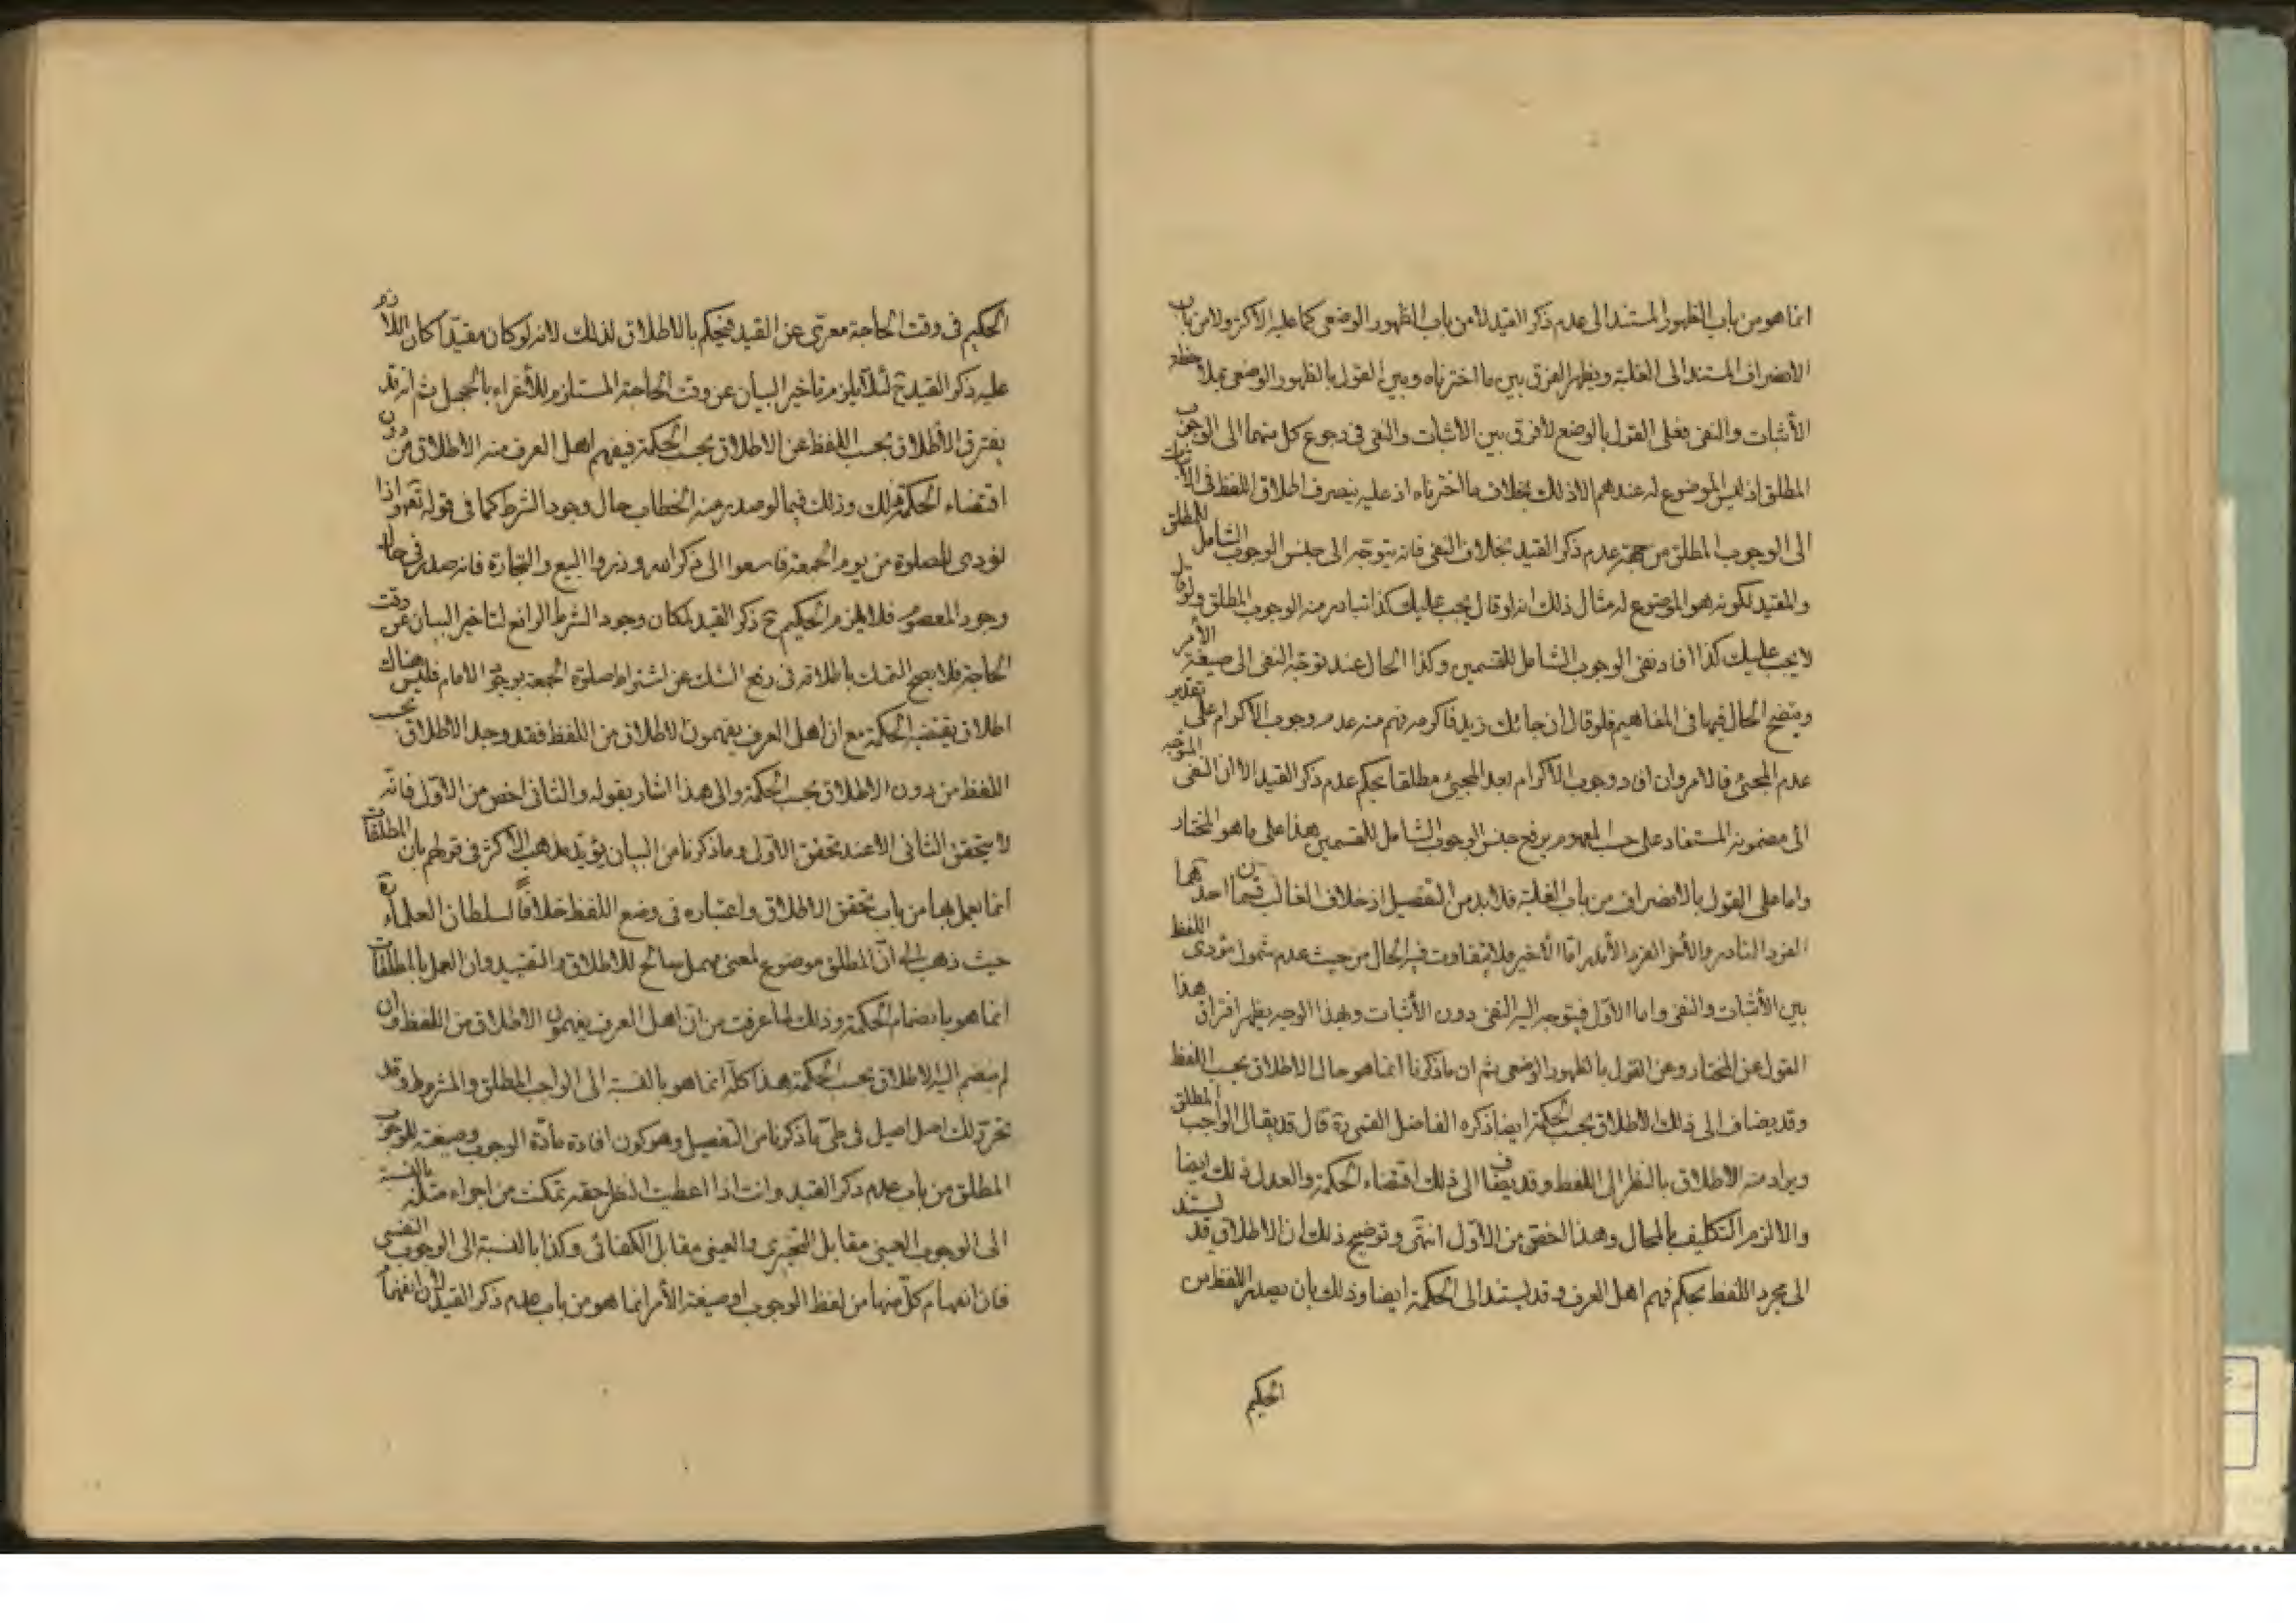 انما هو من باب الظهور المستند الى عدم ذكر القيد لا من باب الظهور الوضعى كما عليه الاكثر ولا من باب
الانصراف المستند الى الغلبة ويظهر الفرق بين ما اخترناه وبين القول بالظهور الوضعى بملاحظة
الأثبات والنفى فعلى القول بالوضع لا فرق بين الاثبات والنفى فى رجوع كل منهما الى الوجوب
المطلق اذ ليس الموضوع له عندهم الا ذلك بخلاف ما اخترناه اذ عليه ينصرف اطلاق اللفظ فى الاثبات
الى الوجوب المطلق من جهة عدم ذكر القيد بخلاف النفى فانه يتوجه الى جنس الوجوب الشامل للمطلق
والمقيد لكونه هو الموضوع له مثال ذلك انه لو قال يجب عليك كذا تبادر منه الوجوب المطلق ولو قيل
لا يجب عليك كذا افاد نفى الوجوب الشامل للقسمين وكذا الحال عند توجه النفى الى صيغة الأمر
ويتضح الحال فيها فى المفاهيم فلو قال ان جائك زيد فاكرمه فهم منه عدم وجوب الاكرام على تقدير
عدم المجئ فالامر وان افاد وجوب الاكرام بعد المجيئ مطلقا بحكم عدم ذكر القيد الا ان النفى المتوجه
الى مضمونه المستفاد على حسب المفهوم يرفع جنس الوجوب الشامل للقسمين هذا على ما هو المختار
واما على القول بالانصراف من باب الغلبة فلا بد من التفصيل اذ خلاف الغالب قسمان احدهما
الفرد النادر والأخر الفرد الأندر امّا الأخير فلا يتفاوت فيه الحال من حيث عدم شمول مؤدى اللفظ
بين الأثبات والنفى واما الاوّل فيتوجه اليه النفى دون الأثبات وبهذا الوجه يظهر افتراق هذا
القول عن المختار وعن القول بالظهور الوضعى ثم ان ما ذكرنا انما هو حال الاطلاق بحسب اللفظ
وقد يضاف الى ذلك الاطلاق بحسب الحكمة ايضا ذكره الفاضل القمى ره قال قد يقال الواجب المطلق
ويراد منه الاطلاق بالنظر الى اللفظ وقد يضاف الى ذلك اقتضاء الحكمة والعدل ذلك ايضا
والا لزم التكليف بالمحال وهذا اخصّ من الاوّل انتهى وتوضيح ذلك ان الاطلاق قد يستند
الى مجرد اللفظ بحكم فهم اهل العرف وقد يستند الى الحكمة ايضا وذلك بان يصدر اللفظ من
الحكيم
الحكيم فى وقت الحاجة معرّى عن القيد فيحكم بالاطلاق لذلك لانه لو كان مقيّدا كان اللازم
عليه ذكر القيد ح لئلا يلزم تاخير البيان عن وقت الحاجة المستلزم للأغراء بالجهل ثم انه قد
يفترق الاطلاق بحسب اللفظ عن الاطلاق بحسب الحكمة فيفهم اهل العرف منه الاطلاق من دون
اقتضاء الحكمة ذلك وذلك فيما لو صدر منه الخطاب حال وجود الشرط كما فى قوله تعالى اذا
نودى للصلوة من يوم الجمعة فاسعوا الى ذكر الله وذروا البيع والتجارة فانه صدر فى حال
وجود المعصوم فلا يلزم الحكيم ح ذكر القيد لمكان وجود الشرط الرافع لتاخير البيان عن وقت
الحاجة فلا يصح التمسك باطلاقه فى رفع الشك عن اشتراط صلوة الجمعة بوجود الامام فليس هناك
اطلاق يقتضيه الحكمة مع ان اهل العرف يفهمون الاطلاق من اللفظ فقد وجد الاطلاق بحسب
اللفظ من دون الاطلاق بحسب الحكمة والى هذا اشار بقوله والثانى اخص من الاوّل فانّه
لا يتحقق الثانى الا عند تحقق الاوّل وما ذكرنا من البيان يؤيّد مذهب الاكثر فى قولهم بان المطلقات
انّما يعمل بها من باب تحقق الاطلاق واعتباره فى وضع اللفظ خلافاً لسلطان العلماء ره
حيث ذهب الى انّ المطلق موضوع لمعنى مهمل صالح للاطلاق والتقييد وان العمل بالمطلقات
انما هو بانضمام الحكمة وذلك لما عرفت من ان اهل العرف يفهمون الاطلاق من اللفظ وان
لم ينضم اليه الاطلاق بحسب الحكمة هذا كلّه انما هو بالنسبة الى الواجب المطلق والمشروط وقد
تحرّر لك اصل اصيل فى طىّ ما ذكرنا من التفصيل وهو كون افادة مادّة الوجوب وصيغته للوجوب
المطلق من باب عدم ذكر القيد وانت اذا اعطيت النظر حقه تمكنت من اجراء مثله بالنسبة
الى الوجوب العينى مقابل التخييرى والعينى مقابل الكفائى وكذا بالنسبة الى الوجوب النفسى
فان انفهام كلّ منها من لفظ الوجوب او صيغة الأمر انما هو من باب عدم ذكر القيد لان انفهام